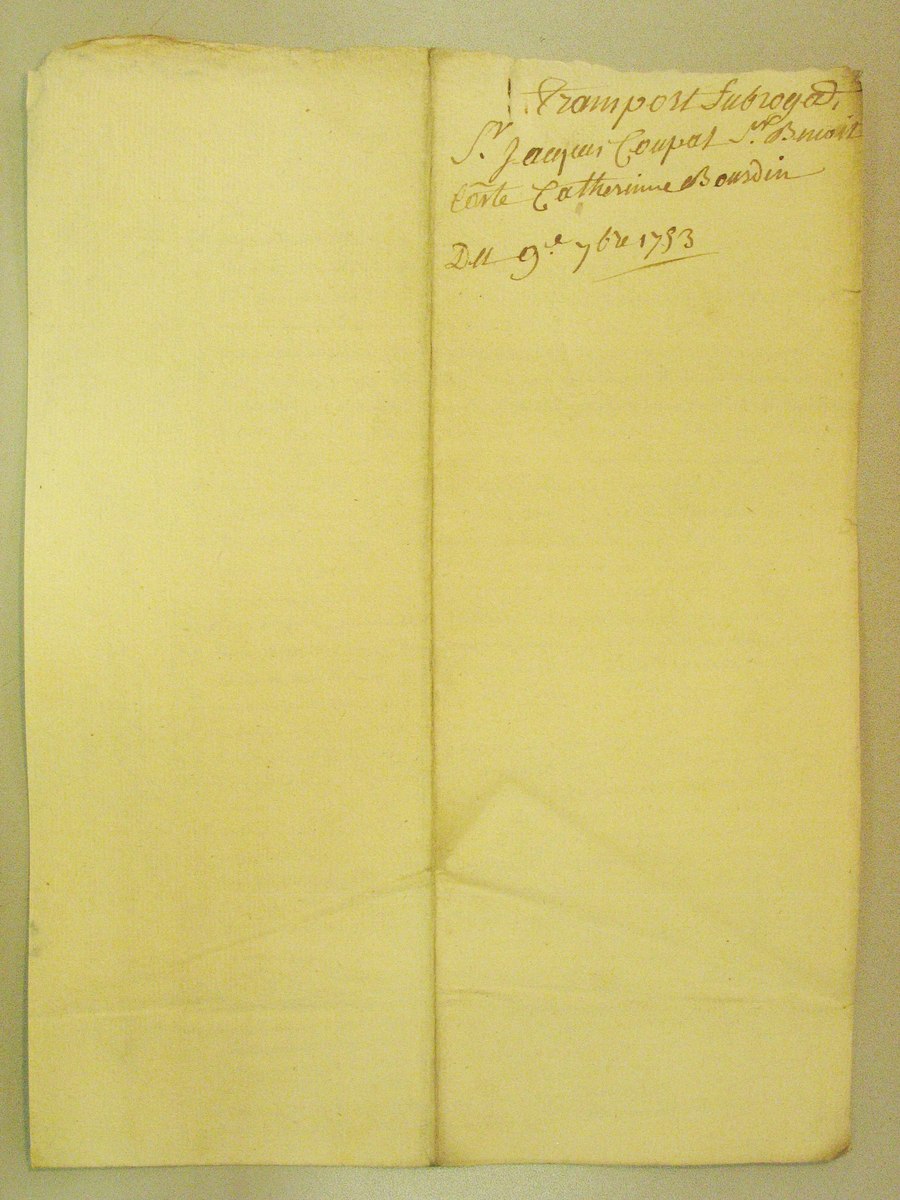 Transport Subrogaõ,
Sr. Jacques Coupat Sr. Benoit
Corte Catherinne Bourdin
Du 9.e 7bre 1753